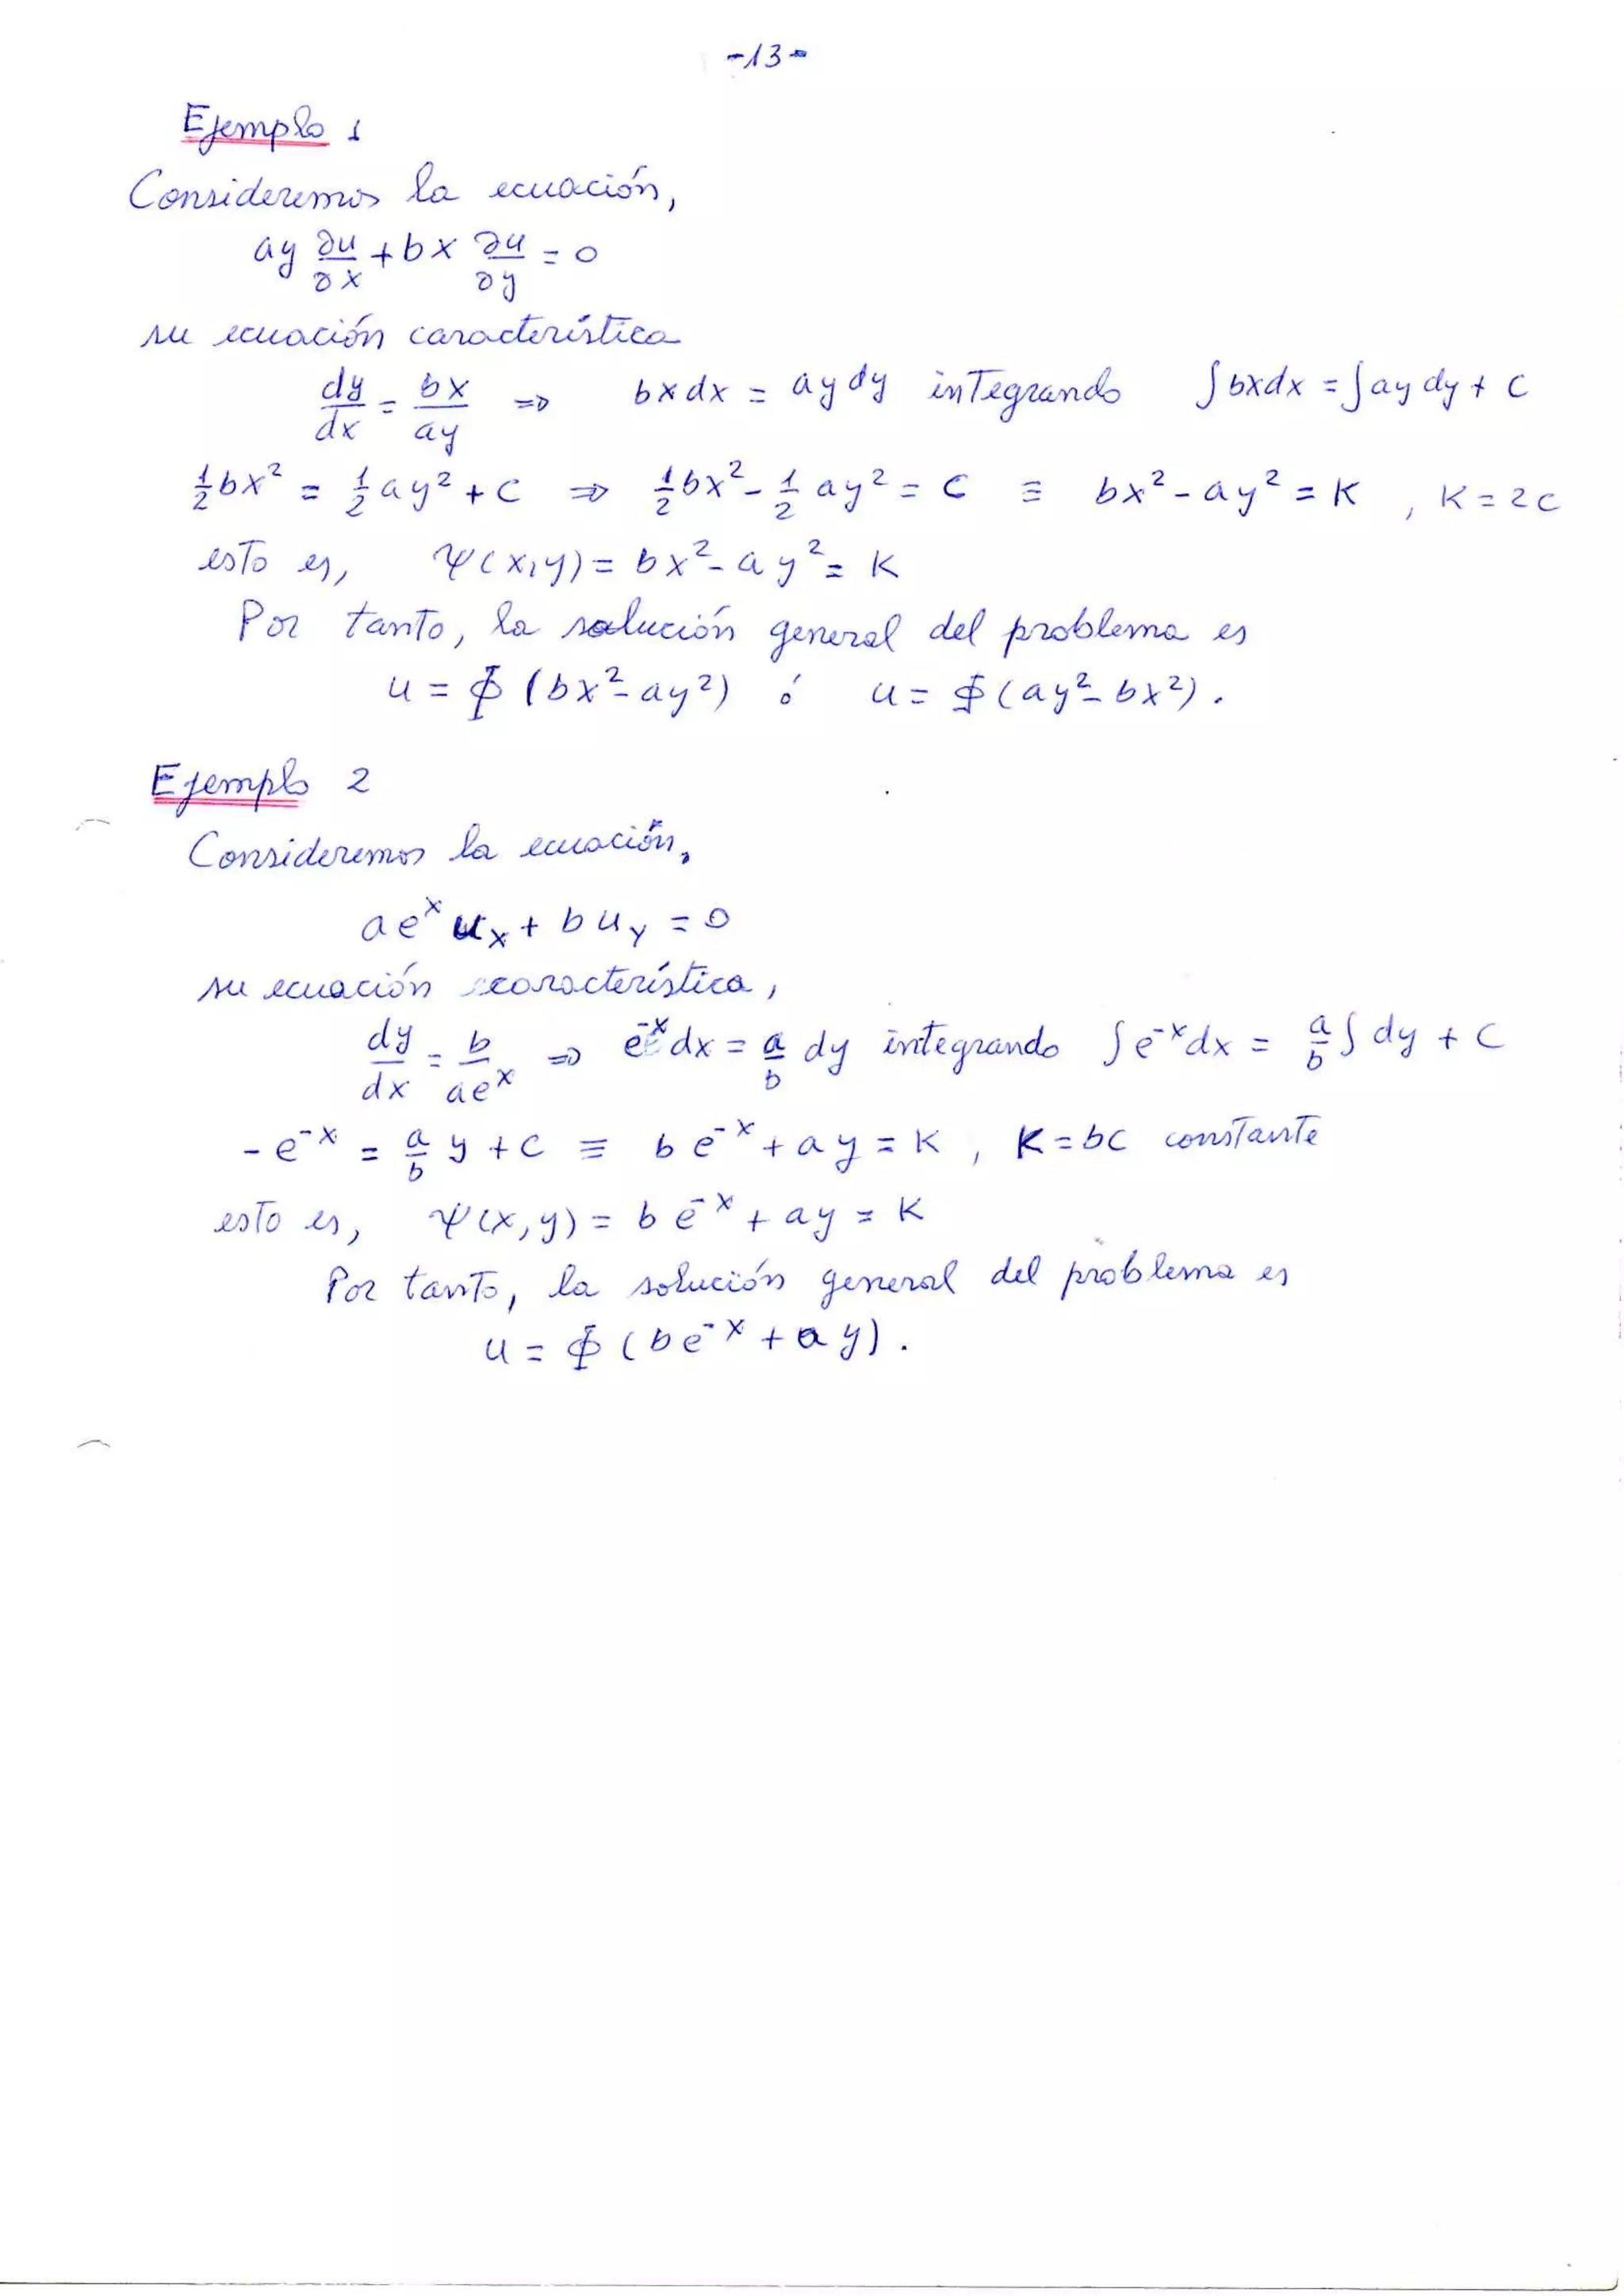 -13-
Ejemplo 1
Consideremos la ecuación,
ay ∂u/∂x + bx ∂u/∂y = 0
su ecuación característica
dy/dx = bx/ay ⇒ bxdx = aydy integrando ∫bxdx = ∫aydy + C
1/2 bx² = 1/2 ay² + C ⇒ 1/2 bx² - 1/2 ay² = C ≡ bx² - ay² = K , K = 2C
esto es, Ψ(x,y) = bx² - ay² = K
Por tanto, la solución general del problema es
u = Φ(bx² - ay²) ó u = Φ(ay² - bx²).
Ejemplo 2
Consideremos la ecuación,
ae^x u_x + b u_y = 0
su ecuación característica,
dy/dx = b/ae^x ⇒ e^-x dx = a/b dy integrando ∫e^-x dx = a/b ∫dy + C
-e^-x = a/b y + C ≡ be^-x + ay = K , K = bC constante
esto es, Ψ(x,y) = be^-x + ay = K
Por tanto, la solución general del problema es
u = Φ(be^-x + ay).